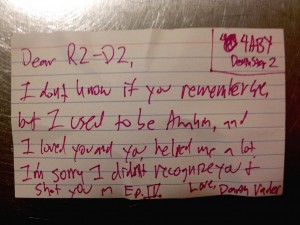 Dear R2-D2,
4ABY
Death Star 2
I dont know if you remember me,
but I used to be Anakin, and
I loved you and you helped me a lot.
I'm sorry I didn't recognize you &
shot you in Ep. IV.
Love, Darth Vader